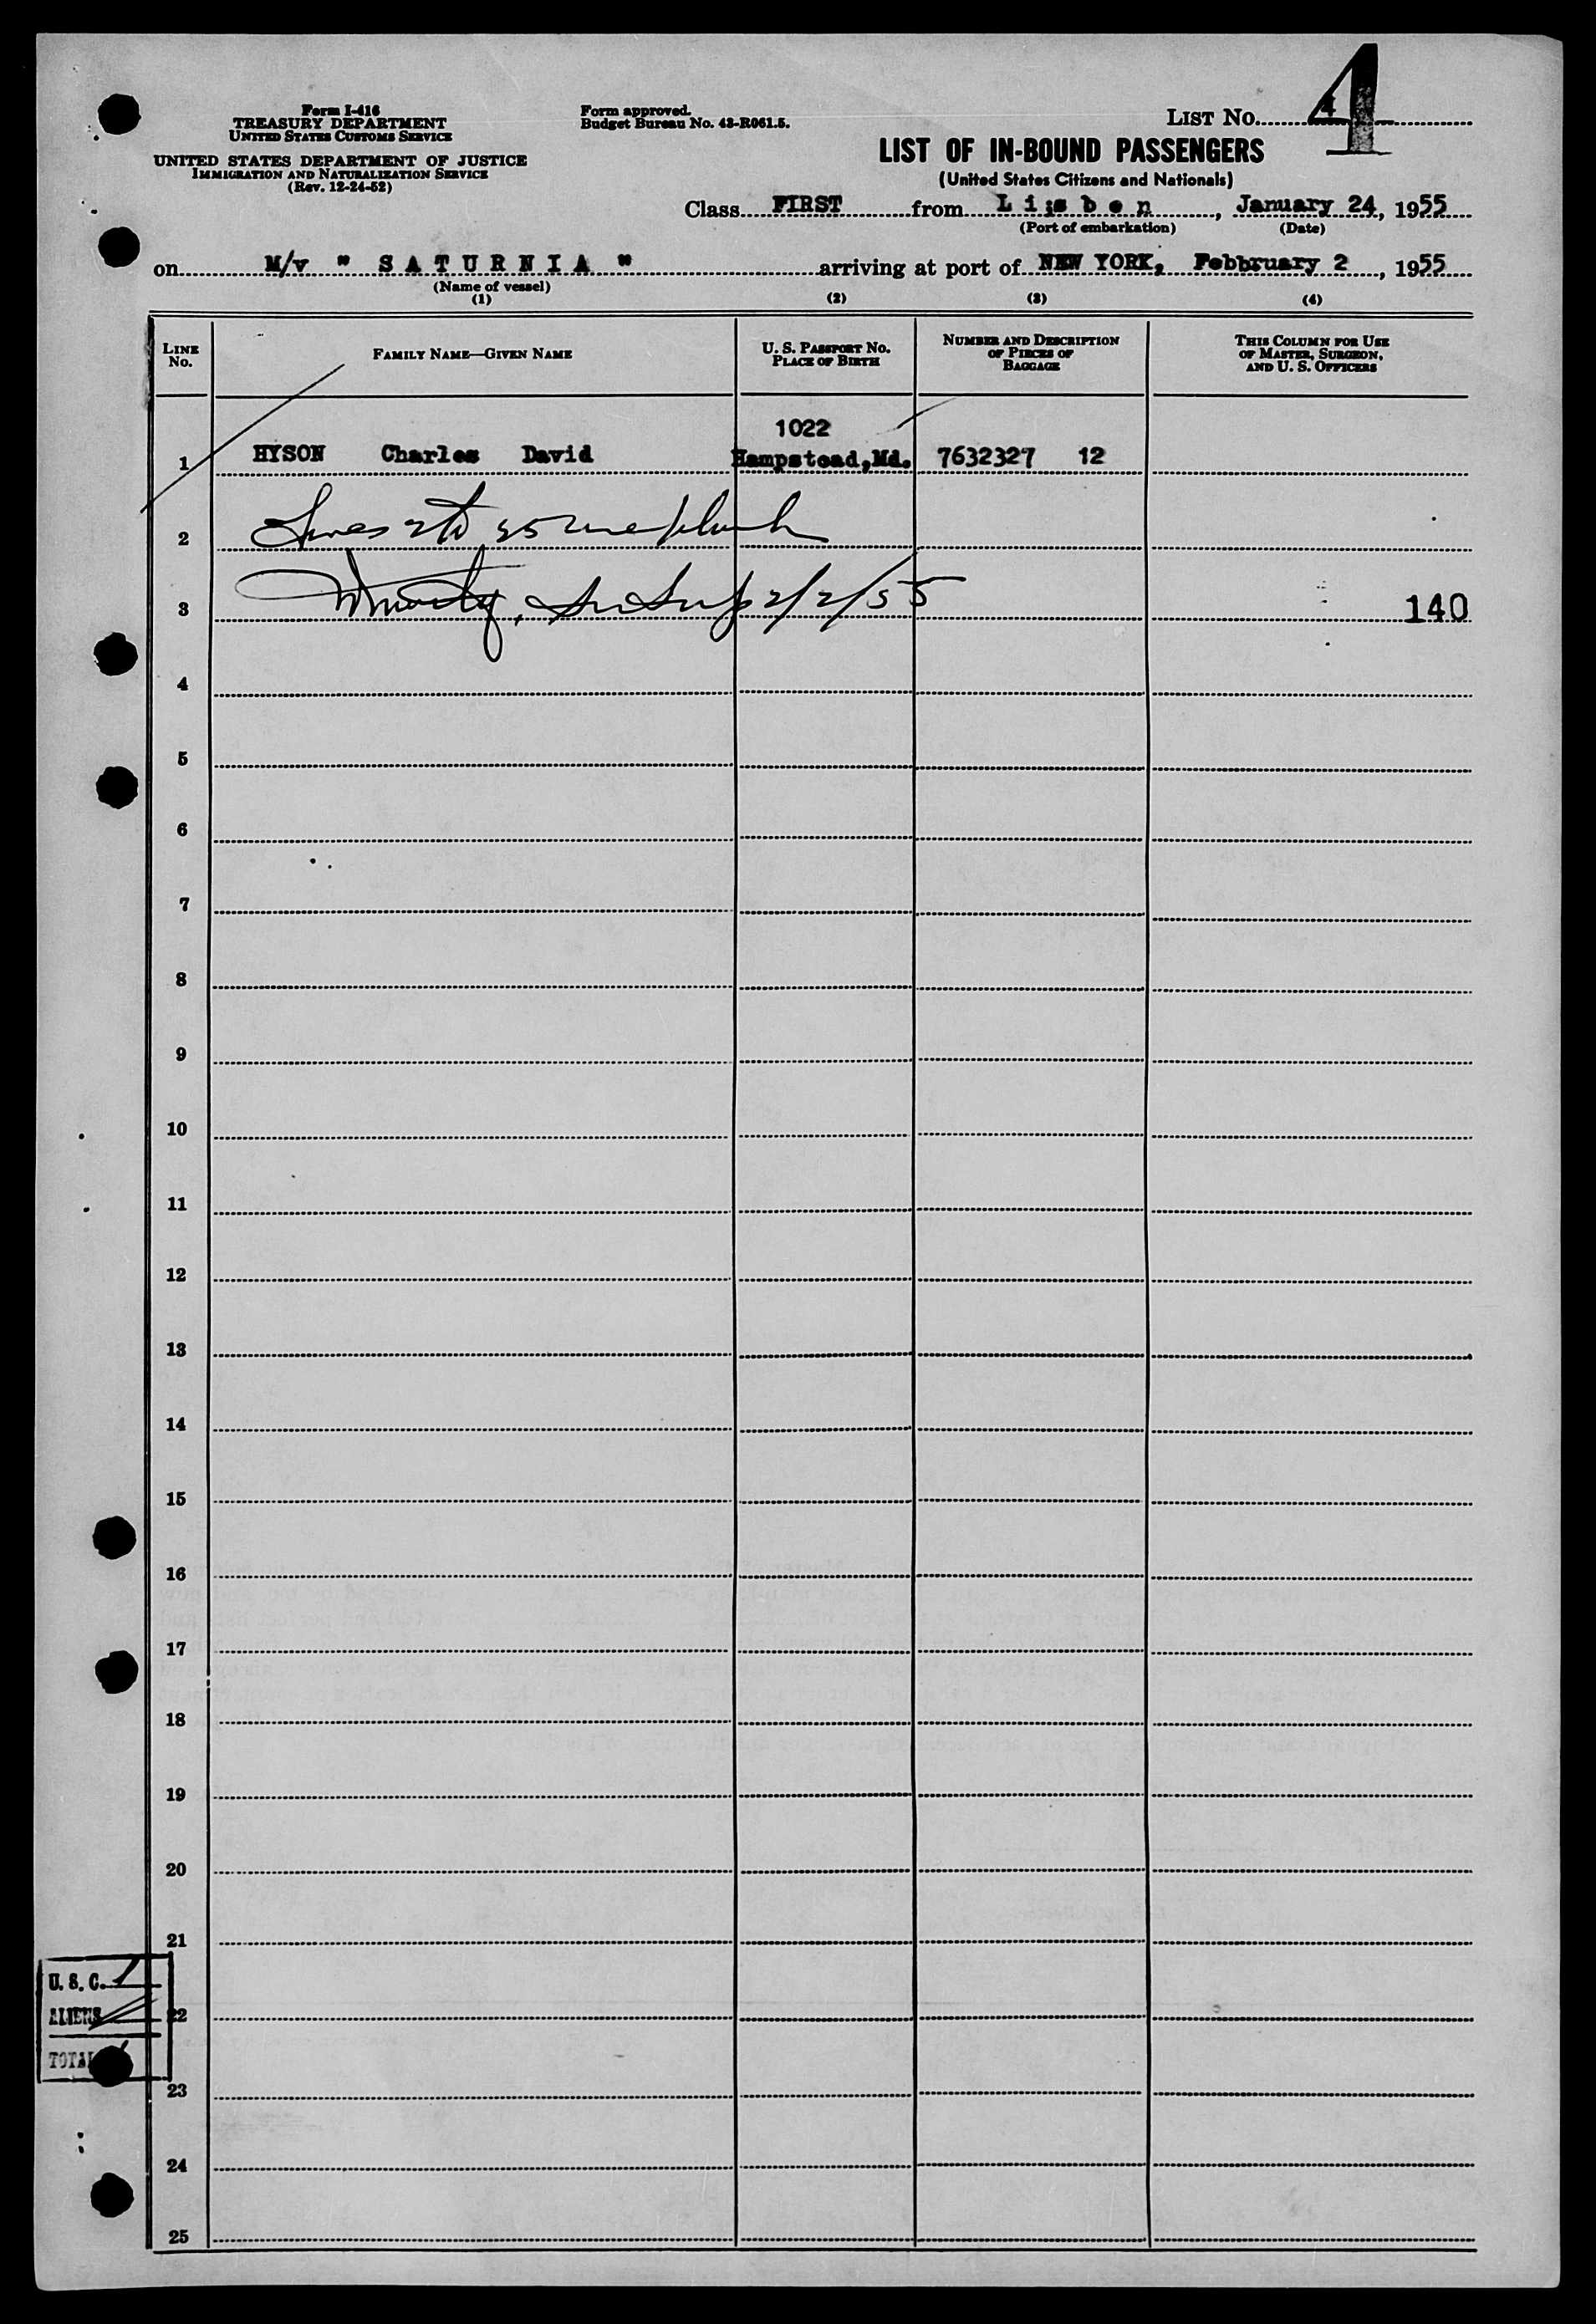 Form I-416
TREASURY DEPARTMENT
UNITED STATES CUSTOMS SERVICE
UNITED STATES DEPARTMENT OF JUSTICE
IMMIGRATION AND NATURALIZATION SERVICE
(Rev. 12-24-52)
Form approved.
Budget Bureau No. 43-R061.5.
LIST No. 4
4
LIST OF IN-BOUND PASSENGERS
(United States Citizens and Nationals)
Class FIRST from Lisbon, January 24, 1955
(Port of embarkation) (Date)
on M/v " SATURNIA " arriving at port of NEW YORK, Febbruary 2, 1955
(Name of vessel)
(1) (2) (3) (4)
LINE No. FAMILY NAME—GIVEN NAME U. S. PASSPORT No. PLACE OF BIRTH NUMBER AND DESCRIPTION OF PIECES OF BAGGAGE THIS COLUMN FOR USE OF MASTER, SURGEON, AND U. S. OFFICERS
1022
1 HYSON Charles David Hampstead,Md. 7632327 12
2
3 2/2/55 140
4
5
6
7
8
9
10
11
12
13
14
15
16
17
18
19
20
21
U. S. C. 1
22
ALIENS
TOTAL
23
24
25